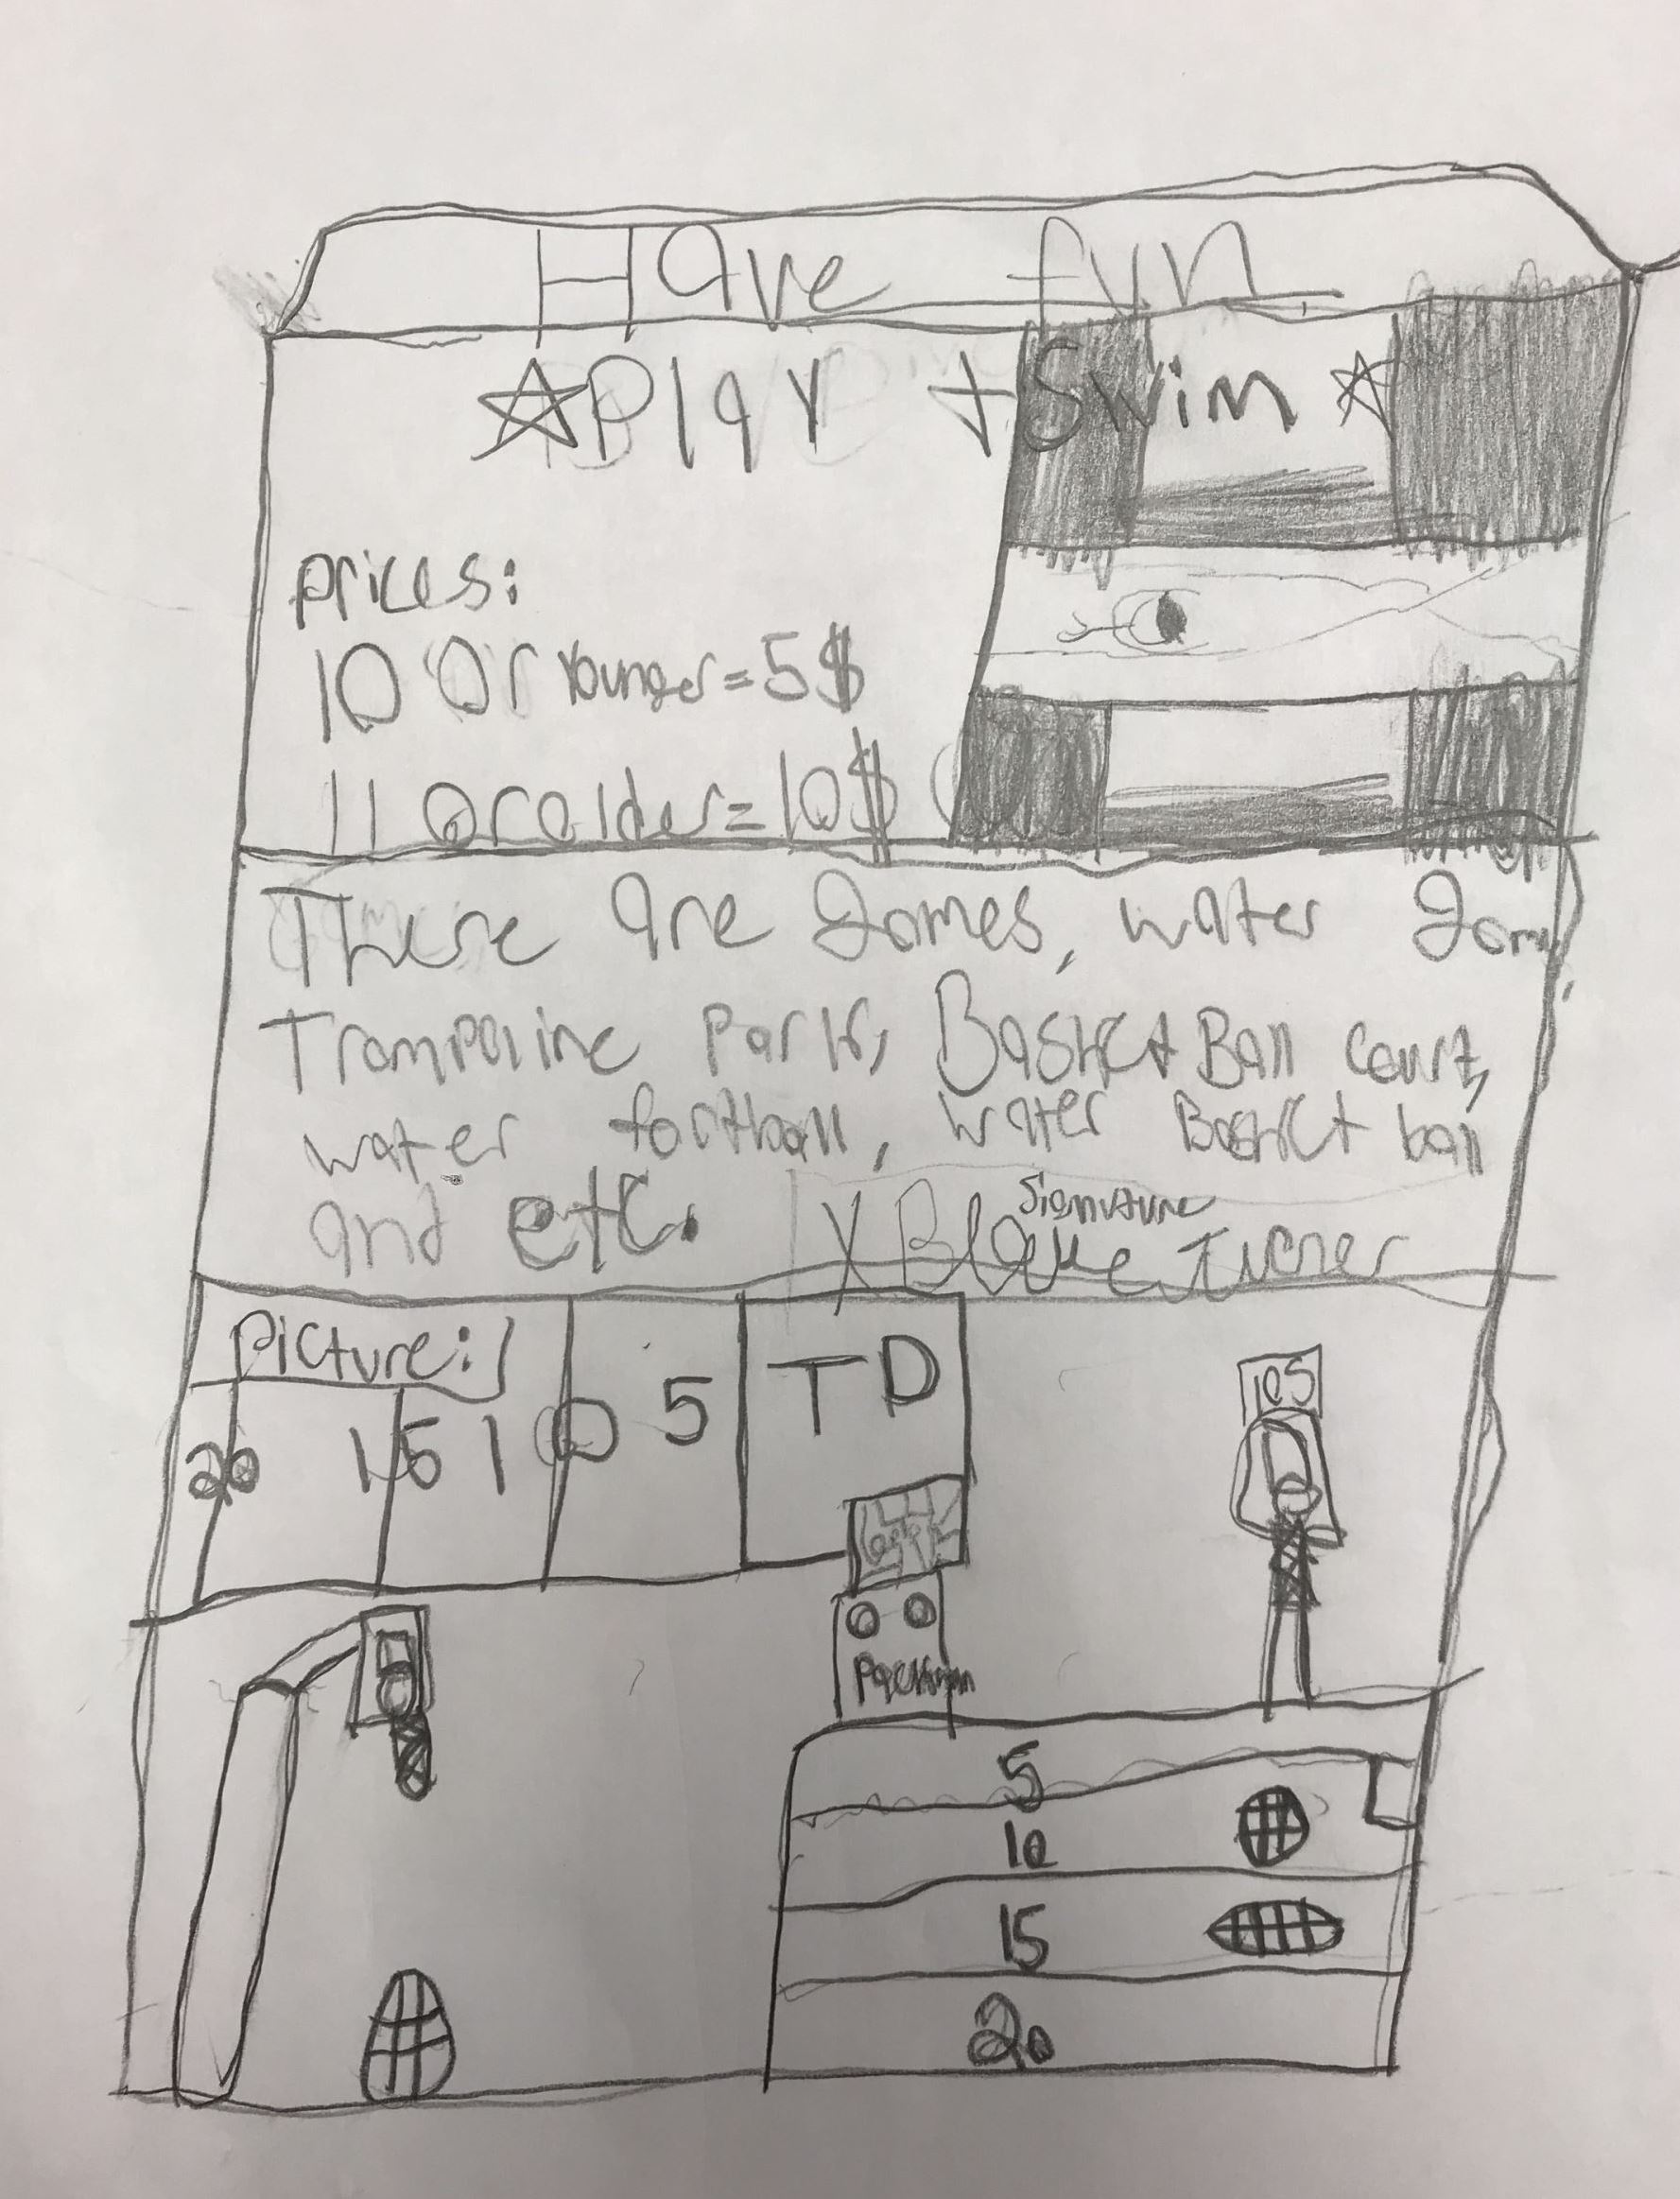 Have fun
☆Play + Swim☆
prices:
10 Or Younger=5$
11 or older=10$
There are games, water gam,
Trampoline Park, Basket Ball court,
water football, water Basket ball
and etc.
Signature
X Blake Turner
Picture:
20 15 10 5 TD
Packman
5
10
15
20